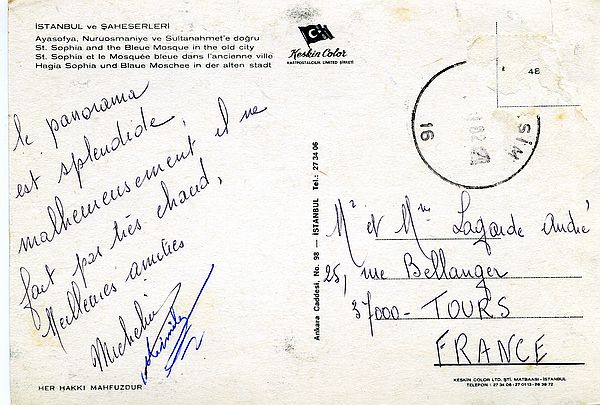 İSTANBUL ve ŞAHESERLERİ
Ayasofya, Nuruosmaniye ve Sultanahmet'e doğru
St. Sophia and the Bleue Mosque in the old city
St. Sophia et le Mosquée bleue dans l'ancienne ville
Hagia Sophia und Blaue Moschee in der alten stadt
Keskin Color
KARTPOSTALCILIK LIMITED ŞİRKETİ
48
SİM
16
le panorama
est splendide,
malheureusement il ne
fait pas très chaud,
Meilleures amitiés
Micheline
HER HAKKI MAHFUZDUR
Ankara Caddesi, No. 98 — İSTANBUL Tel.: 27 34 06
Mr et Mme Lagarde André
25, rue Bellanger
37000 - TOURS
FRANCE
KESKİN COLOR LTD. ŞTİ. MATBAASI-İSTANBUL
TELEFON : 27 34 06-27 01 13-26 39 72